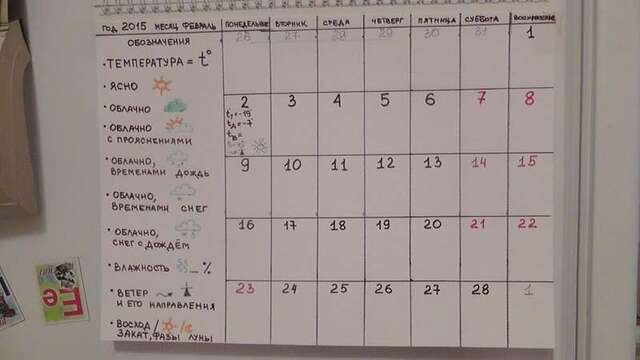 ГОД 2015 МЕСЯЦ ФЕВРАЛЬ
ОБОЗНАЧЕНИЯ
• ТЕМПЕРАТУРА = t°
• ЯСНО
• ОБЛАЧНО
• ОБЛАЧНО
С ПРОЯСНЕНИЯМИ
• ОБЛАЧНО,
ВРЕМЕНАМИ ДОЖДЬ
• ОБЛАЧНО,
ВРЕМЕНАМИ СНЕГ
• ОБЛАЧНО,
СНЕГ С ДОЖДЁМ
• ВЛАЖНОСТЬ _%
• ВЕТЕР
И ЕГО НАПРАВЛЕНИЯ
• ВОСХОД /
ЗАКАТ, ФАЗЫ ЛУНЫ
ПОНЕДЕЛЬНИК ВТОРНИК СРЕДА ЧЕТВЕРГ ПЯТНИЦА СУББОТА ВОСКРЕСЕНЬЕ
26 27 28 29 30 31 1
2 3 4 5 6 7 8
9 10 11 12 13 14 15
16 17 18 19 20 21 22
23 24 25 26 27 28 1
Ее